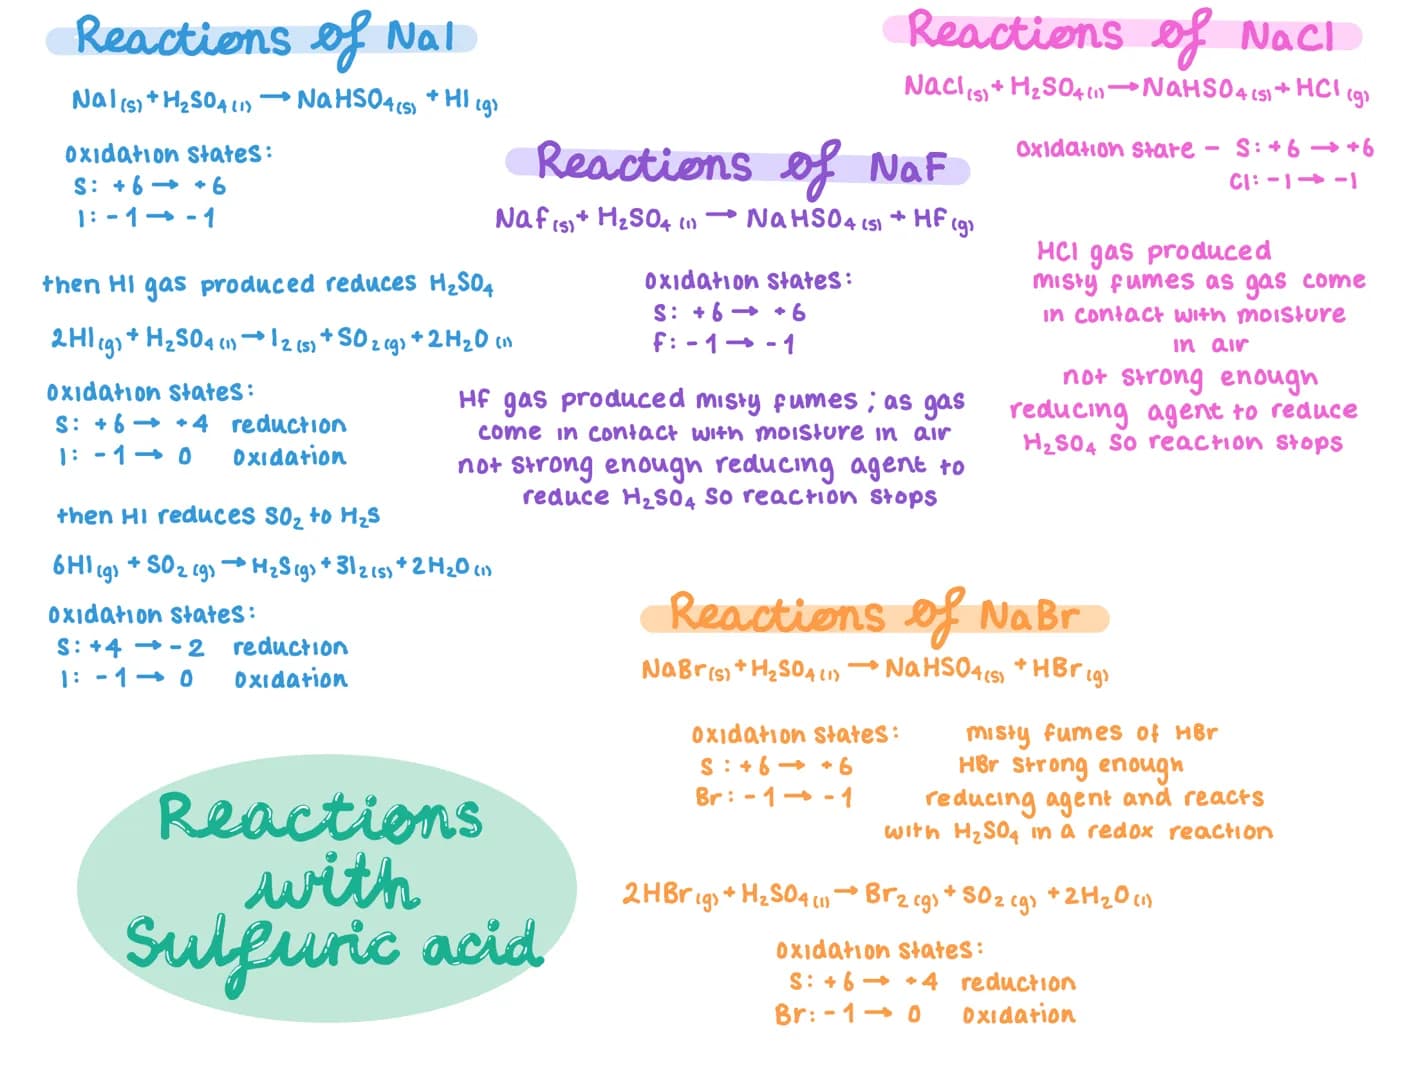 Reactions of NaI
NaI(s) + H₂SO₄(l) → NaHSO₄(s) + HI(g)
Oxidation states:
S: +6 → +6
I: -1 → -1
then HI gas produced reduces H₂SO₄
2HI(g) + H₂SO₄(l) → I₂(s) + SO₂(g) + 2H₂O(l)
Oxidation states:
S: +6 → +4 reduction
I: -1 → 0 Oxidation
then HI reduces SO₂ to H₂S
6HI(g) + SO₂(g) → H₂S(g) + 3I₂(s) + 2H₂O(l)
Oxidation states:
S: +4 → -2 reduction
I: -1 → 0 Oxidation
Reactions of NaF
NaF(s) + H₂SO₄(l) → NaHSO₄(s) + HF(g)
Oxidation states:
S: +6 → +6
F: -1 → -1
HF gas produced misty fumes ; as gas
come in contact with moisture in air
not strong enough reducing agent to
reduce H₂SO₄ so reaction stops
Reactions of NaCl
NaCl(s) + H₂SO₄(l) → NaHSO₄(s) + HCl(g)
Oxidation state - S: +6 → +6
Cl: -1 → -1
HCl gas produced
misty fumes as gas come
in contact with moisture
in air
not strong enough
reducing agent to reduce
H₂SO₄ so reaction stops
Reactions of NaBr
NaBr(s) + H₂SO₄(l) → NaHSO₄(s) + HBr(g)
Oxidation states:
S : +6 → +6
Br: -1 → -1
misty fumes of HBr
HBr strong enough
reducing agent and reacts
with H₂SO₄ in a redox reaction
2HBr(g) + H₂SO₄(l) → Br₂(g) + SO₂(g) + 2H₂O(l)
Oxidation states:
S: +6 → +4 reduction
Br: -1 → 0 Oxidation
Reactions
with
Sulfuric acid